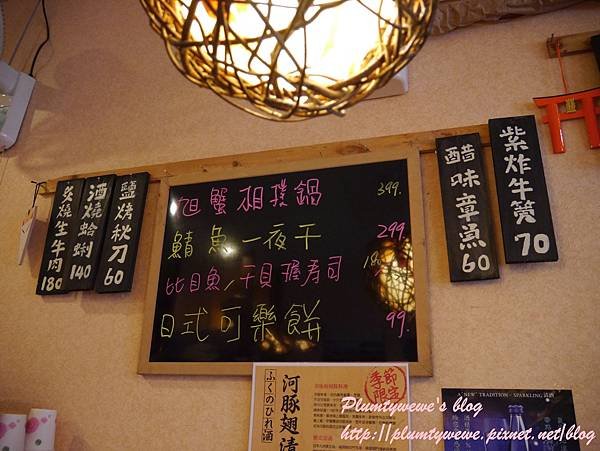 炙燒生牛肉 180
酒燒蛤蜊 140
鹽烤秋刀 60
旭蟹相撲鍋 399.
鯖魚一夜干 299
比目魚/干貝握壽司
日式可樂餅 99.
醋味章魚 60
紫炸牛蒡 70
季節限定
河豚翅漬
ふくのひれ酒
A NEW TRADITION - SPARKLING 清酒
Plumtywewe's blog
http://plumtywewe.pixnet.net/blog